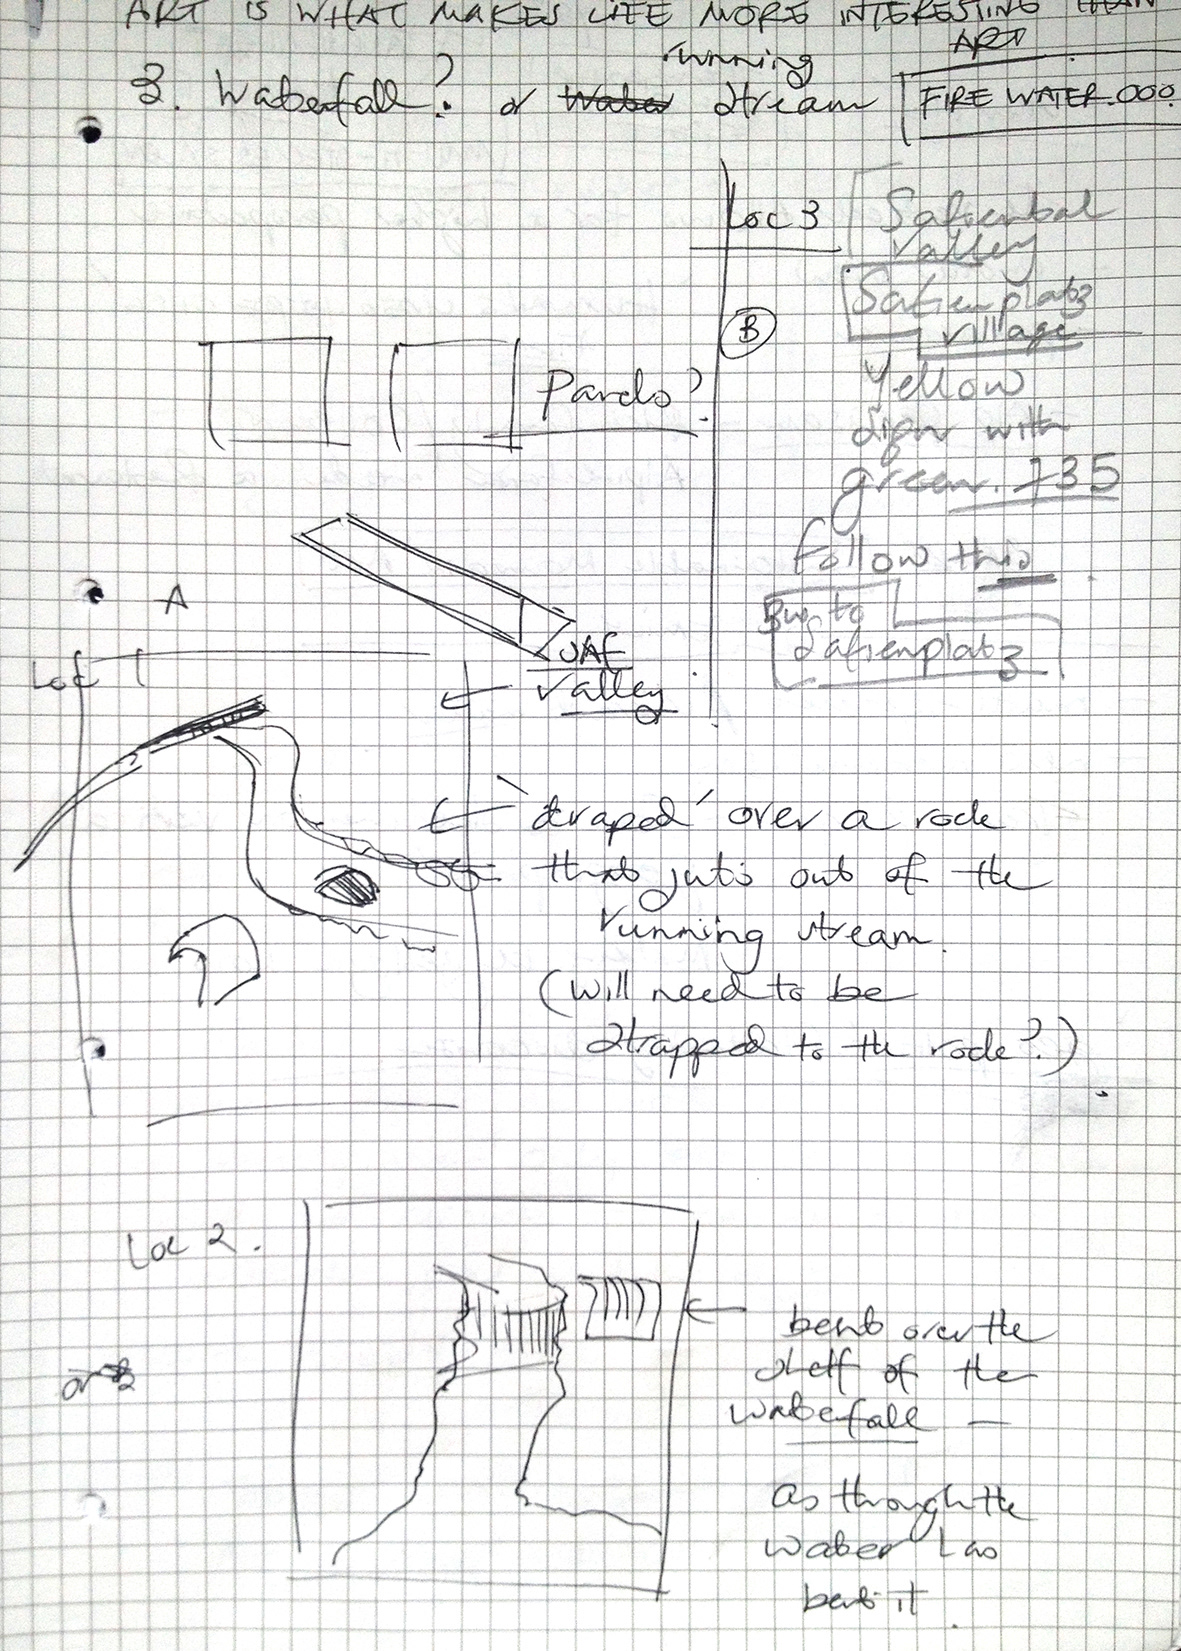 ART IS WHAT MAKES LIFE MORE INTERESTING THAN
ART
3. Waterfall? or Water running stream
FIRE WATER.000.
Loc 3
Safiental
Valley
Safienplatz
village
B
Yellow
sign with
green. 735
Follow this
to
Safienplatz
Pardo?
A
Loc 1
SAF
Valley
'draped' over a rock
that juts out of the
running stream.
(will need to be
strapped to the rock?)
Loc 2.
bent over the
shelf of the
waterfall —
as through the
water has
bent it.